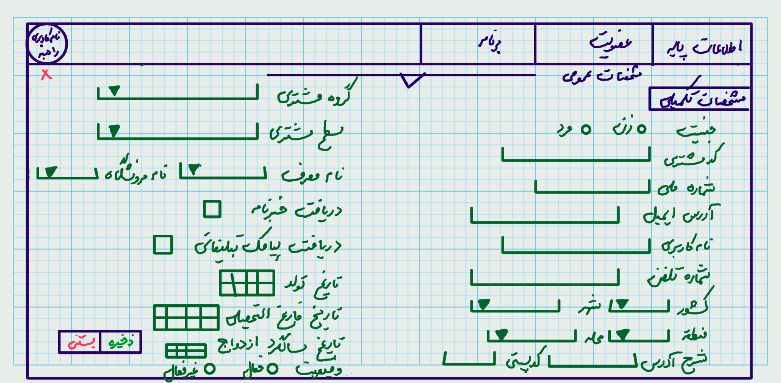 اطلاعات پایه
عضویت
برنامه
نام کاربری
راهبر
x
مشخصات عمومی
مشخصات تکمیلی
جنسیت زن مرد
کد مشتری
شماره ملی
آدرس ایمیل
نام کاربری
شماره تلفن
کشور شهر
منطقه محله
شرح آدرس کدپستی
گروه مشتری
سطح مشتری
نام معرف نام فروشگاه
دریافت خبرنامه
دریافت پیامک تبلیغاتی
تاریخ تولد
تاریخ فارغ التحصیلی
تاریخ سالگرد ازدواج
وضعیت فعال غیرفعال
ذخیره بستن